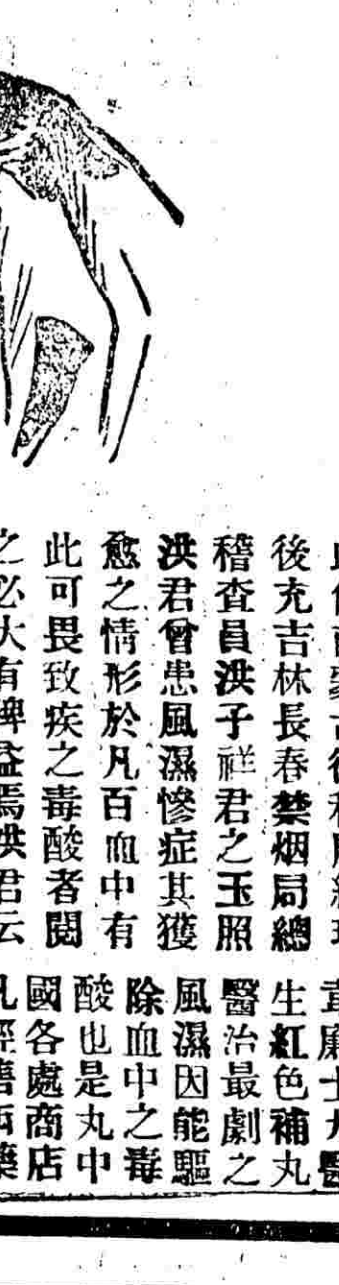 後充吉林長春禁烟局總
稽查員洪子祥君之玉照
洪君曾患風濕慘症其獲
愈之情形於凡百血中有
此可畏致疾之毒酸者閱
之必大有裨益焉洪君云
韋廉士大醫
生紅色補丸
醫治最劇之
風濕因能驅
除血中之毒
酸也是丸中
國各處商店
凡經售西藥